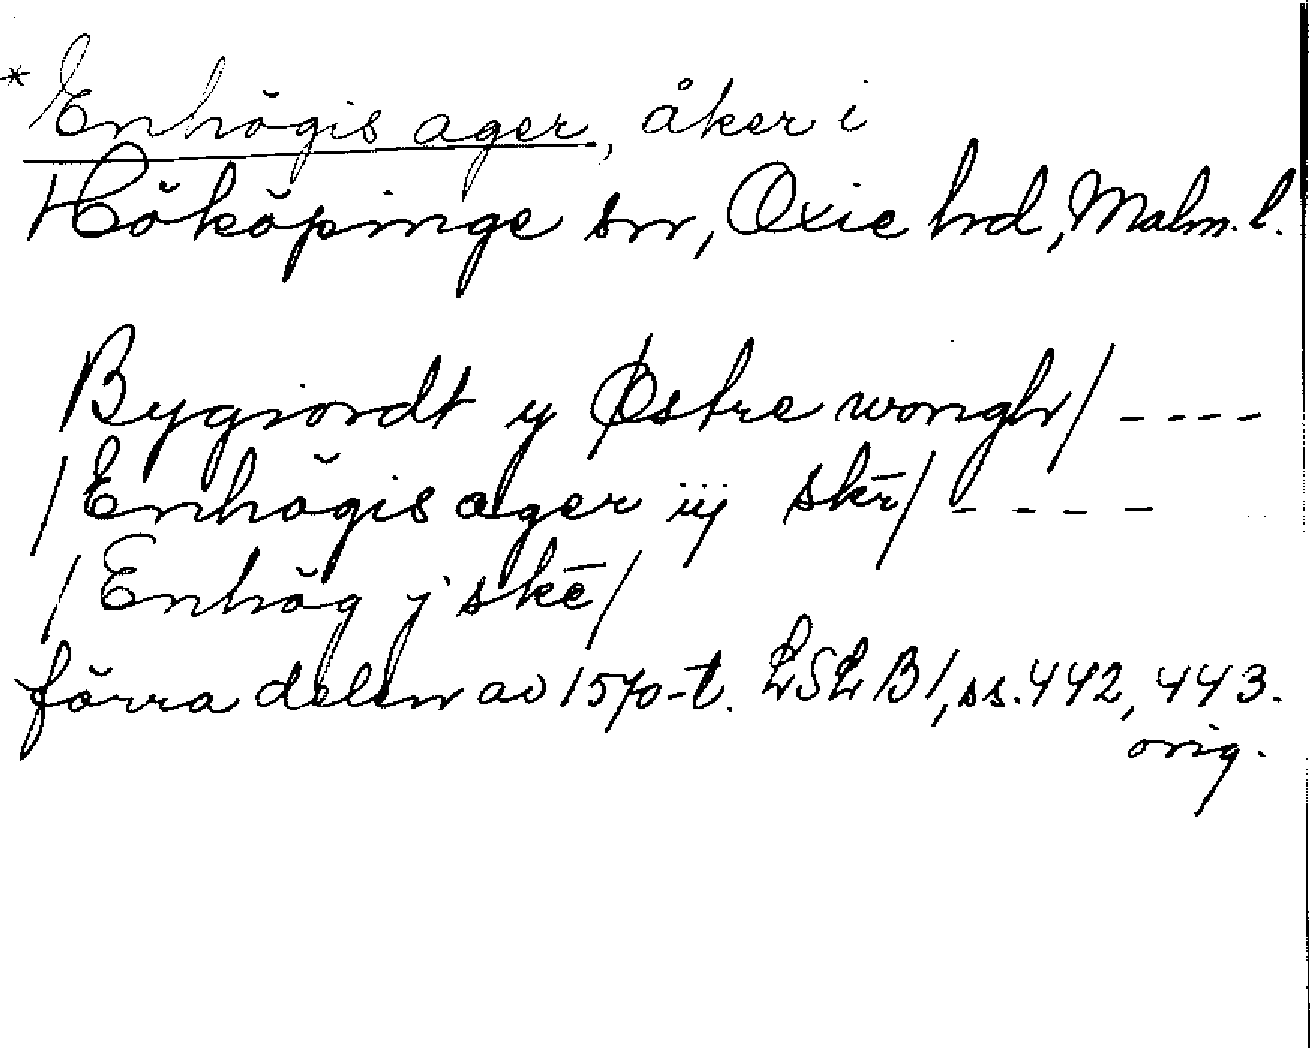 * Enhögis ager, åker i
Hököpinge sn, Oxie hd, Malm. l.
Bygiordt y Østre wongh/ ----
/Enhŏgis ager iij skē/ ----
/Enhŏg j skē/
förra delen av 1570-t. LSL B1, ss. 442, 443.
orig.